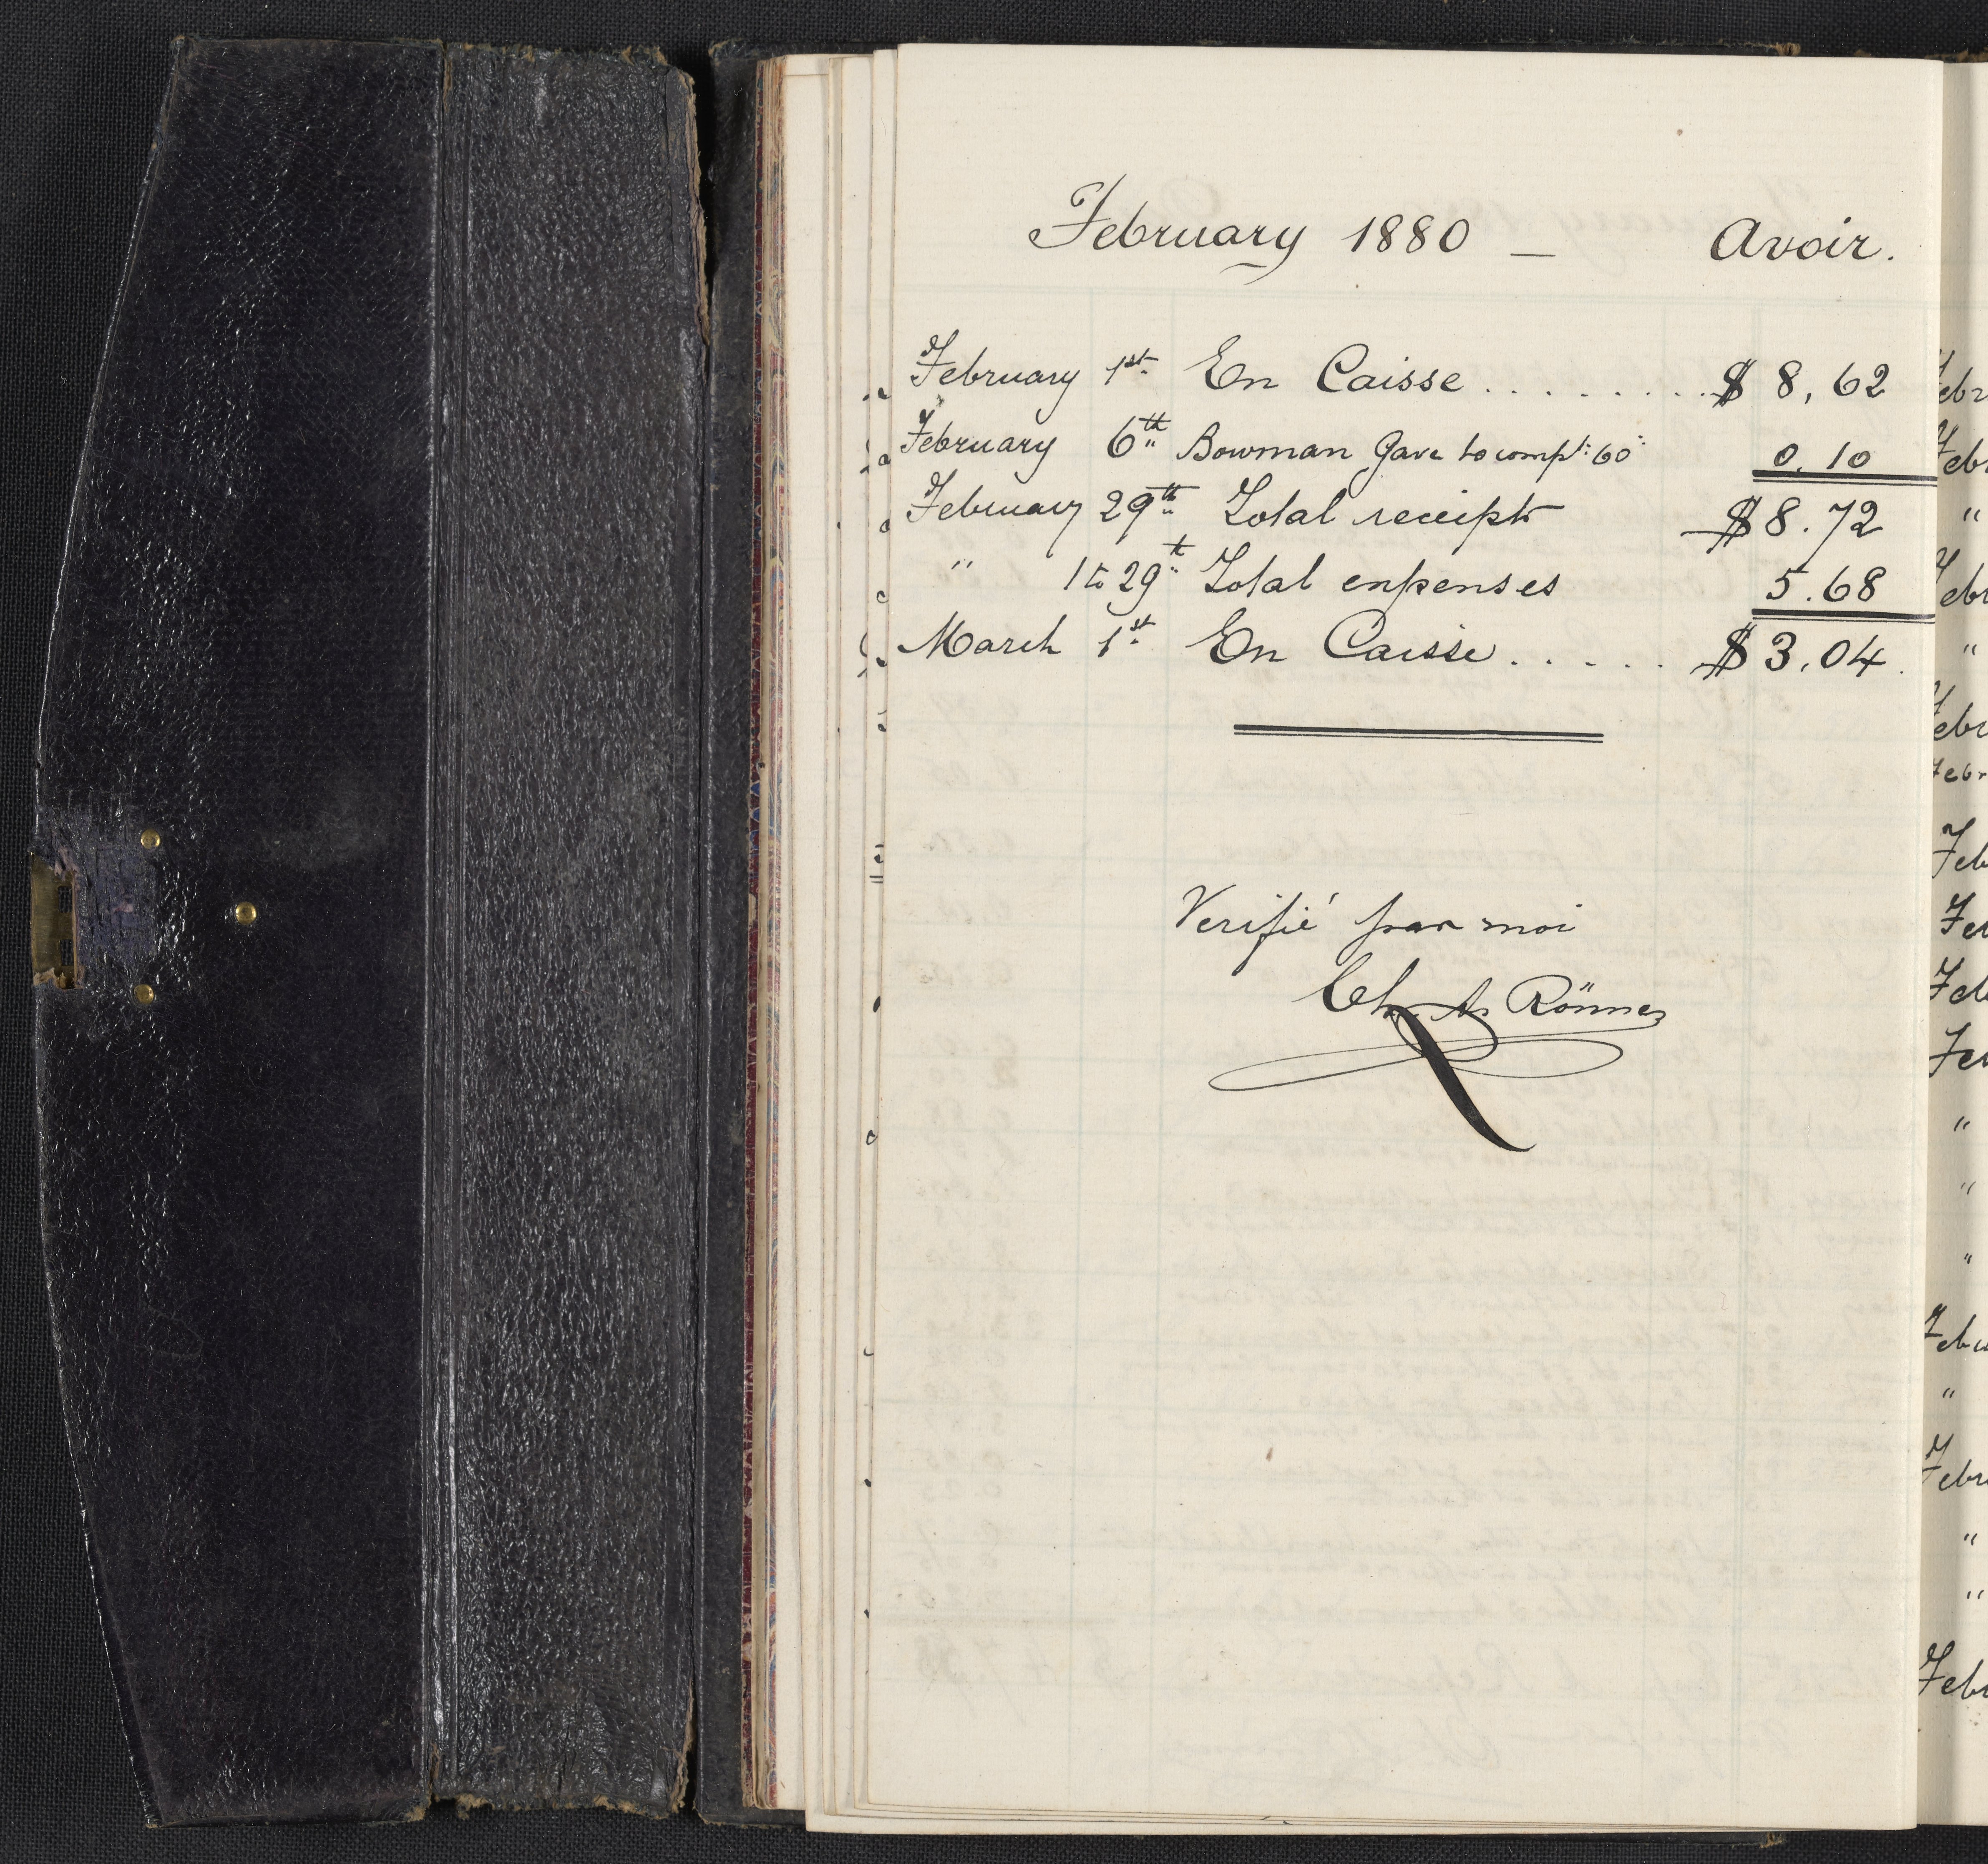 February 1880 — Avoir.
February 1st. En Caisse . . . . . . . . $ 8,62
February 6th Bowman Gave to compt: 60 0.10
February 29th Total receipts $8.72
" 1 to 29th Total expenses 5.68
March 1st. En Caisse . . . . . $ 3,04.
Verifié par moi
Ch. A. Rönne